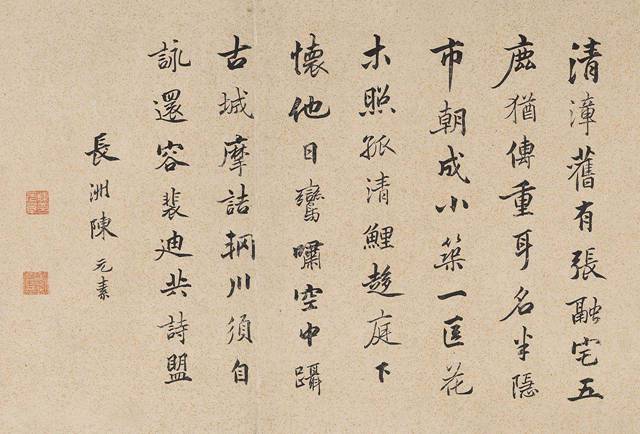 清漳舊有張融宅五
鹿猶傳重耳名半隱
市朝成小築一區花
木照孤清鯉趍庭下
懷他日鸞嘯空中躡
古城摩詰輞川須自
詠還容裴迪共詩盟
長洲陳元素